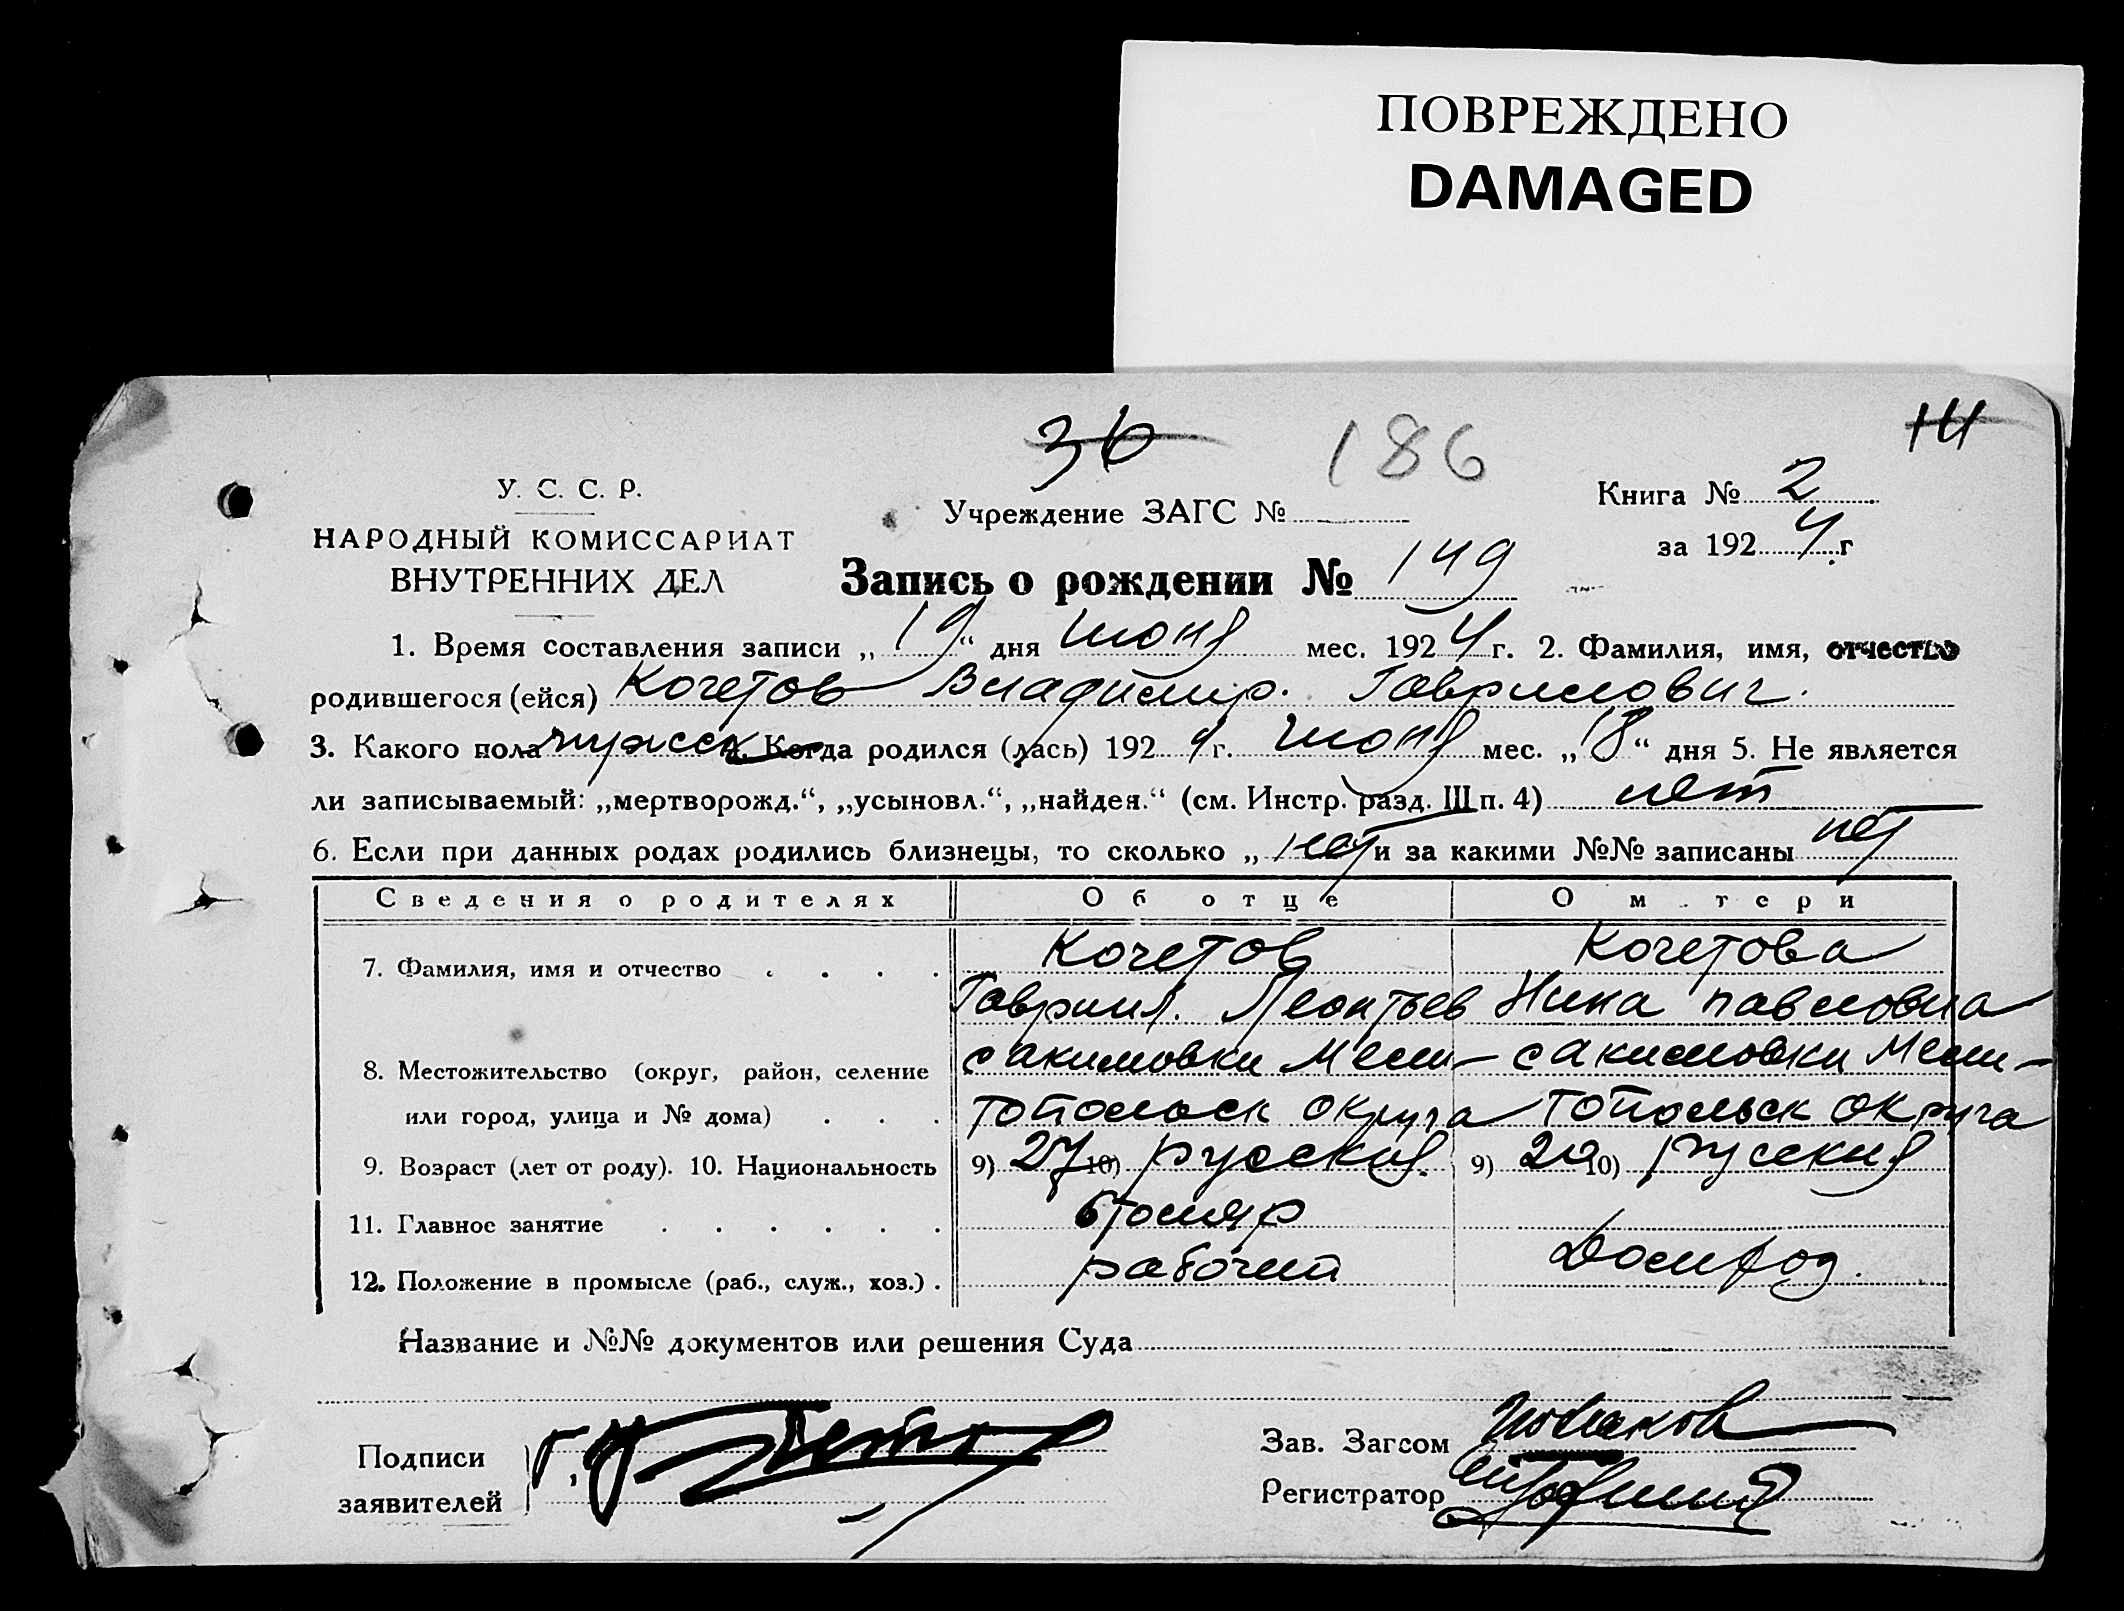 ПОВРЕЖДЕНО
DAMAGED
36
186
141
У. С. С. Р.
НАРОДНЫЙ КОМИССАРИАТ
ВНУТРЕННИХ ДЕЛ
Учреждение ЗАГС №
Книга № 2
за 1924 г
Запись о рождении № 149
1. Время составления записи „ 19 “ дня июня мес. 1924 г. 2. Фамилия, имя, отчество
родившегося (ейся) Кочетов Владимир. Гаврилович.
3. Какого пола мужск 4. Когда родился (лась) 1924 г. июня мес. „ 18 “ дня 5. Не является
ли записываемый: „мертворожд.“, „усыновл.“, „найден.“ (см. Инстр. разд. III п. 4) нет
6. Если при данных родах родились близнецы, то сколько „ нет и за какими №№ записаны нет
Сведения о родителях Об отце О м тери
7. Фамилия, имя и отчество Кочетов Кочетова
Гавриил. Леонтьев Нина павловна
с акимовки Мели- с акимовки Мели-
8. Местожительство (округ, район, селение
или город, улица и № дома) топольск округа топольск округа
9. Возраст (лет от роду). 10. Национальность 9) 27 10) русский. 9) 20 10) русския
11. Главное занятие столяр
12. Положение в промысле (раб., служ., хоз.) рабочий Домход.
Название и №№ документов или решения Суда
Подписи
заявителей
Зав. Загсом
Регистратор